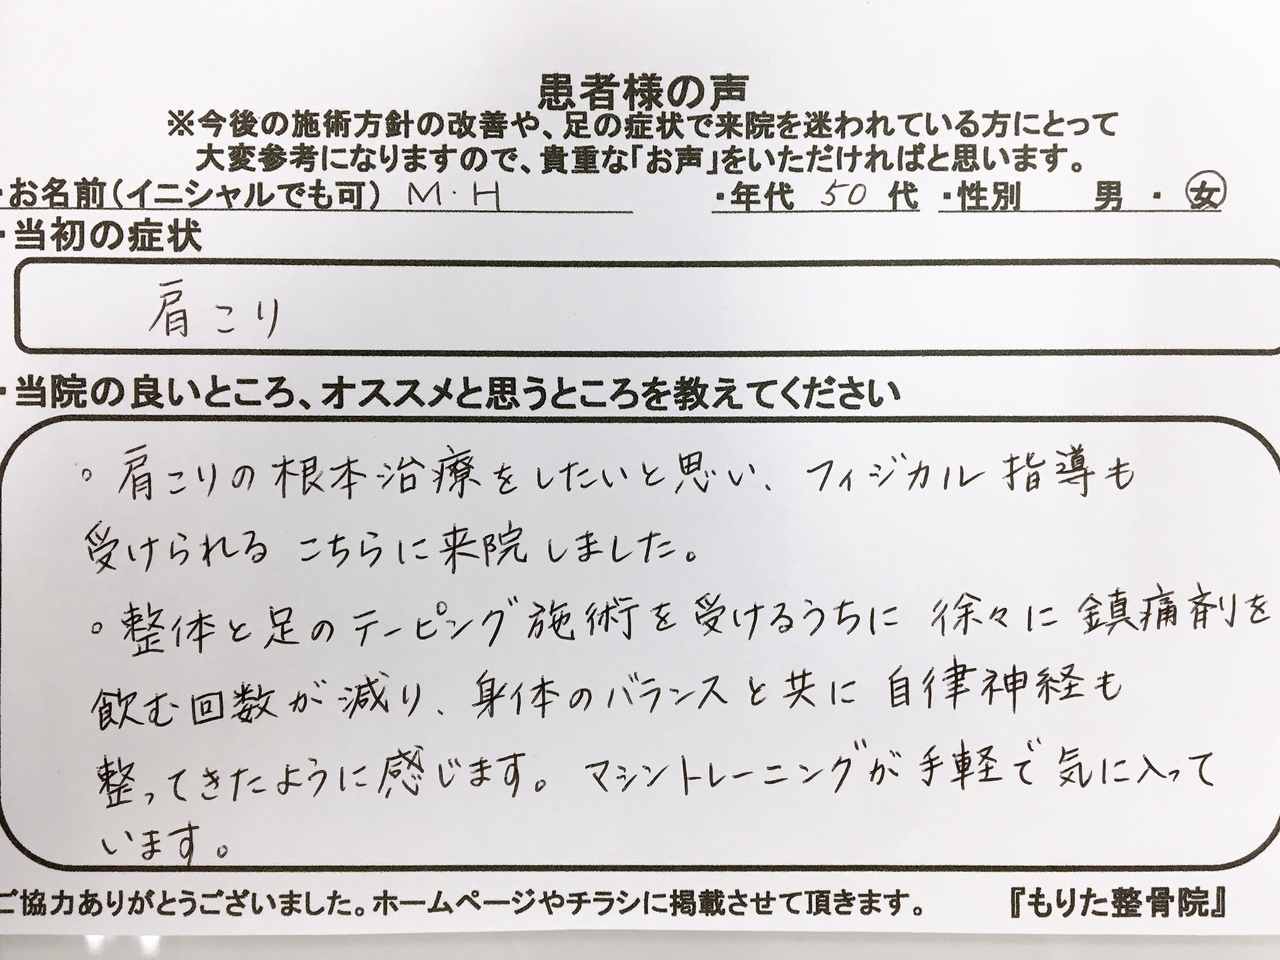 患者様の声
※今後の施術方針の改善や、足の症状で来院を迷われている方にとって
大変参考になりますので、貴重な「お声」をいただければと思います。
・お名前(イニシャルでも可) M・H ・年代 50 代 ・性別 男 ・ 女
・当初の症状
肩こり
・当院の良いところ、オススメと思うところを教えてください
○肩こりの根本治療をしたいと思い、フィジカル指導も
受けられる こちらに来院しました。
○整体と足のテーピング施術を受けるうちに 徐々に 鎮痛剤を
飲む回数が減り、身体のバランスと共に 自律神経も
整ってきたように感じます。マシントレーニングが手軽で気に入って
います。
ご協力ありがとうございました。ホームページやチラシに掲載させて頂きます。 『もりた整骨院』